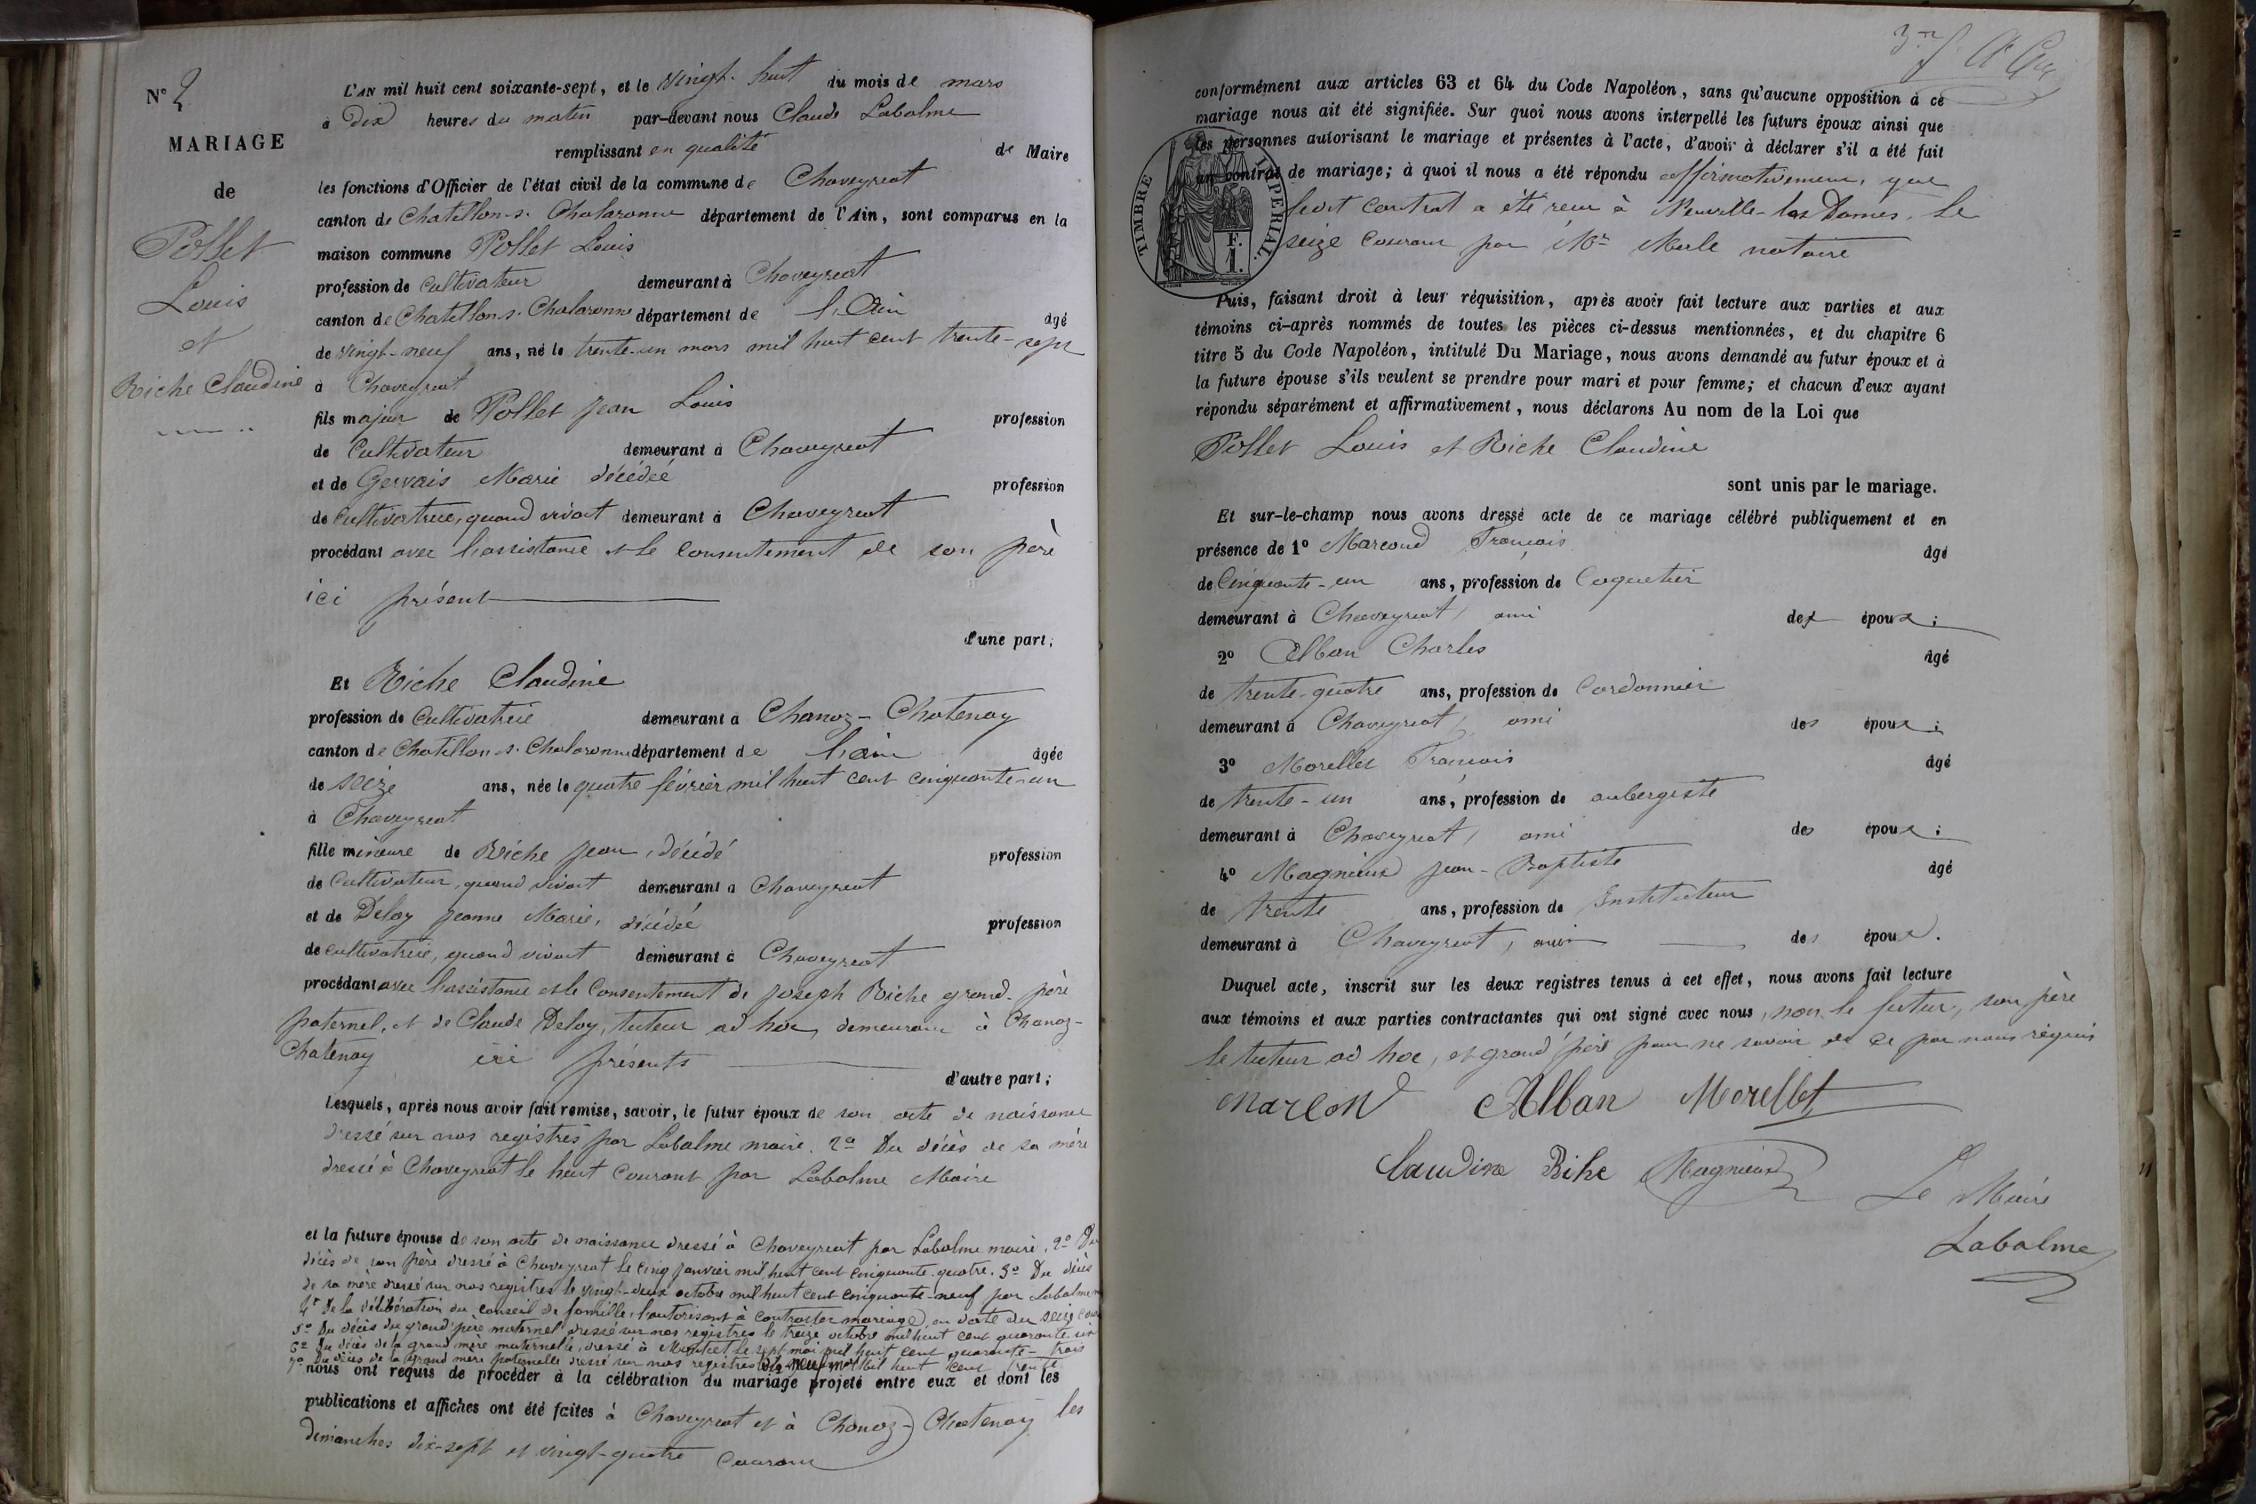 N° 2
MARIAGE
de
Pollet
Louis
et
Riche Claudine
L'AN mil huit cent soixante-sept, et le vingt-huit du mois de mars
à dix heures du matin par-devant nous Claude Labalme
remplissant en qualité de Maire
les fonctions d'Officier de l'état civil de la commune de Chaveyriat
canton de Chatillon-s-Chalaronne département de l'Ain, sont comparus en la
maison commune Pollet Louis
profession de cultivateur demeurant à Chaveyriat
canton de Chatillon-s-Chalaronne département de l'Ain âgé
de vingt-neuf ans, né le trente-un mars mil huit cent trente-sept
à Chaveyriat
fils majeur de Pollet Jean Louis profession
de cultivateur demeurant à Chaveyriat
et de Gervais Marie décédée profession
de cultivatrice, quand vivait demeurant à Chaveyriat
procédant avec l'assistance et le consentement de son père
ici présent
d'une part;
Et Riche Claudine
profession de cultivatrice demeurant à Chanoz-Chatenay
canton de Chatillon-s-Chalaronne département de l'ain âgée
de seize ans, née le quatre février mil huit cent cinquante-un
à Chaveyriat
fille mineure de Riche Jean, décédé profession
de cultivateur, quand vivait demeurant à Chaveyriat
et de Deloy Jeanne Marie, décédée profession
de cultivatrice, quand vivait demeurant à Chaveyriat
procédant avec l'assistance et le consentement de Joseph Riche grand-père
paternel, et de Claude Deloy, tuteur ad hoc, demeurant à Chanoz-
Chatenay ici présents
d'autre part;
Lesquels, après nous avoir fait remise, savoir, le futur époux de son acte de naissance
dressé sur nos registres par Labalme maire. 2° Du décès de sa mère
dressé à Chaveyriat le huit courant par Labalme Maire
et la future épouse de son acte de naissance dressé à Chaveyriat par Labalme maire, 2° Du
décès de son père dressé à Chaveyriat le cinq janvier mil huit cent cinquante-quatre. 3° Du décès
de sa mère dressé sur nos registres le vingt-deux octobre mil huit cent cinquante-neuf par Labalme
4° De la délibération du conseil de famille l'autorisant à contracter mariage, en date du seize
5° Du décès du grand'père maternel dressé sur nos registres le treize octobre mil huit cent quarante six
6° Du décès de la grand mère maternelle, dressé à le sept mai mil huit cent quarante-trois
7° Du décès de la grand mère paternelle dressé sur nos registres mil huit cent trente
nous ont requis de procéder à la célébration du mariage projeté entre eux et dont les
publications et affiches ont été faites à Chaveyriat et à Chanoz-Chatenay les
dimanches dix-sept et vingt-quatre courant
conformément aux articles 63 et 64 du Code Napoléon, sans qu'aucune opposition à ce
mariage nous ait été signifiée. Sur quoi nous avons interpellé les futurs époux ainsi que
les personnes autorisant le mariage et présentes à l'acte, d'avoir à déclarer s'il a été fait
un contrat de mariage; à quoi il nous a été répondu affirmativement, que
ledit contrat a été reçu à Neuville-les Dames, le
seize courant par Mr Merle notaire
TIMBRE IMPERIAL
F.
1.
Puis, faisant droit à leur réquisition, après avoir fait lecture aux parties et aux
témoins ci-après nommés de toutes les pièces ci-dessus mentionnées, et du chapitre 6
titre 5 du Code Napoléon, intitulé Du Mariage, nous avons demandé au futur époux et à
la future épouse s'ils veulent se prendre pour mari et pour femme; et chacun d'eux ayant
répondu séparément et affirmativement, nous déclarons Au nom de la Loi que
Pollet Louis et Riche Claudine
sont unis par le mariage.
Et sur-le-champ nous avons dressé acte de ce mariage célébré publiquement et en
présence de 1° Marcond François âgé
de cinquante-un ans, profession de coquetier
demeurant à Chaveyriat, ami des époux;
2° Alban Charles âgé
de trente-quatre ans, profession de cordonnier
demeurant à Chaveyriat, ami des époux;
3° Morellet François âgé
de trente-un ans, profession de aubergiste
demeurant à Chaveyriat, ami des époux;
4° Magnieux Jean-Baptiste âgé
de trente ans, profession de Instituteur
demeurant à Chaveyriat, ami des époux.
Duquel acte, inscrit sur les deux registres tenus à cet effet, nous avons fait lecture
aux témoins et aux parties contractantes qui ont signé avec nous, non le futur, son père
le tuteur ad hoc, et grand père pour ne savoir de ce par nous requis
marcon Alban Morellet
Claudine Rihe Magnieux
Le Maire
Labalme